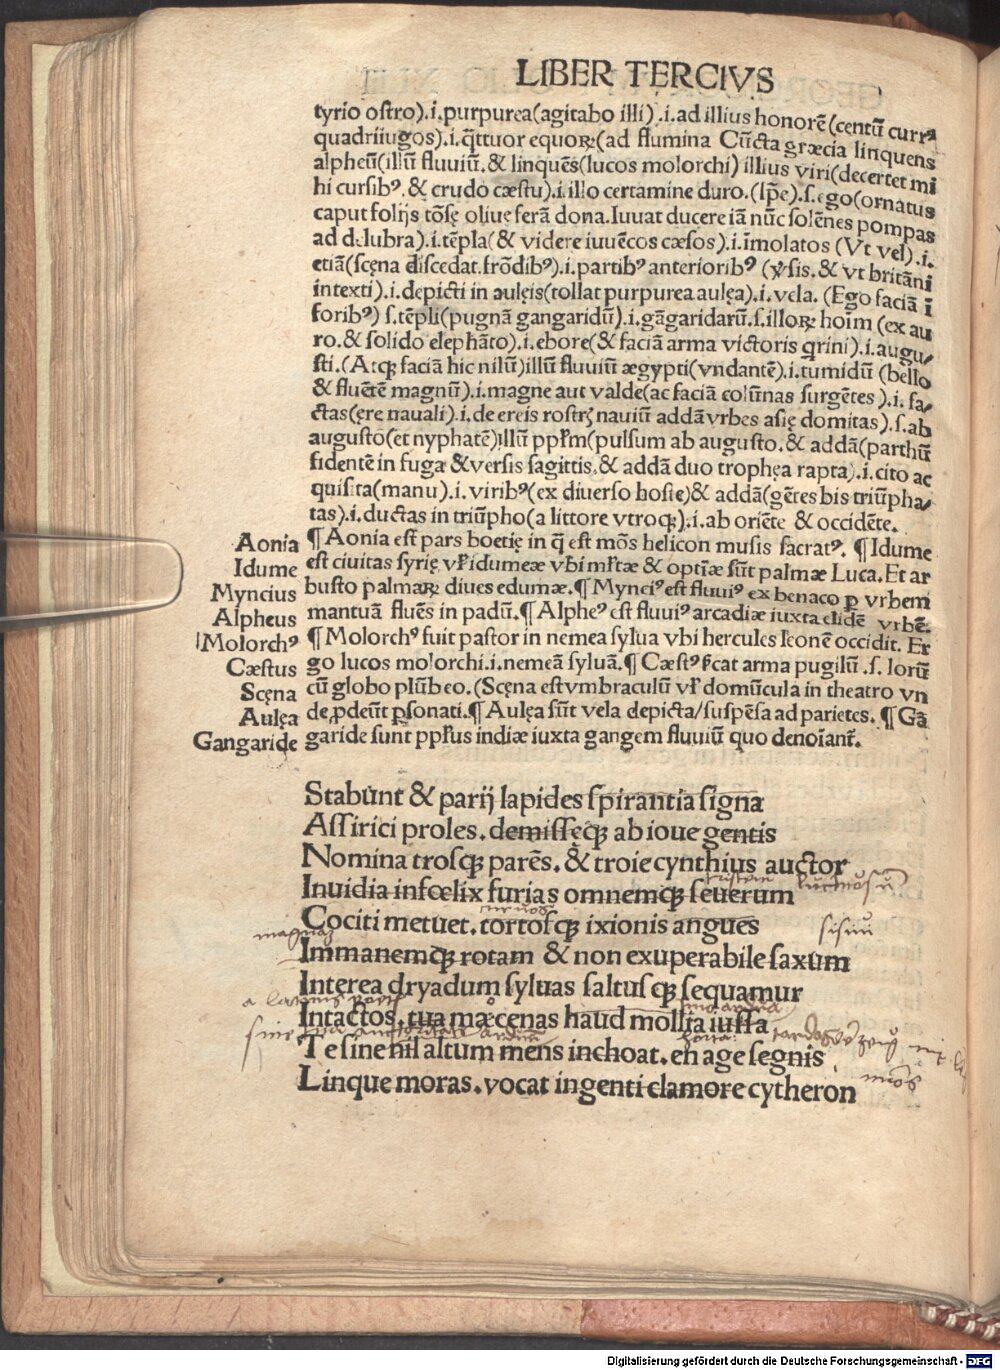 LIBER TERCIVS
tyrio ostro).i.purpurea(agitabo illi).i.ad illius honorē(centū currꝰ
quadriiugos).i.q̄ttuor equoꝝ(ad flumina Cūcta græcia linquens
alpheū(illū fluuiū.& linquēs(lucos molorchi) illius viri(decertet mi
hi cursibꝰ.& crudo cæstu).i.illo certamine duro.(Ip̄e).s.ego(ornatus
caput folijs tōsę oliuę ferā dona.Iuuat ducere iā nūc solēnes pompas
ad delubra).i.tēpla(& videre iuuēcos cæsos).i.īmolatos (Vt vel).i.
etiā(scęna discedat.frōdibꝰ).i.partibꝰ anterioribꝰ (v̓sis.& vt britāni
intexti).i.depicti in aulęis(tollāt purpurea aulęa).i.vela. (Ego faciā ī
foribꝰ) s.tēpli(pugnā gangaridū).i.gāgaridarū.s.illoꝝ hoīm (ex au
ro.& solido elephāto).i.ebore(& faciā arma victoris qrini).i.augu/
sti.(Atqꝫ faciā hic nilū)illū fluuiū ægypti(vndantē).i.tumidū (bello
& fluētē magnū).i.magne aut valde(ac faciā colūnas surgētes).i.fa/
ctas(ęre nauali).i.de ereis rostrꝭ nauiū addā vrbes asię domitas).s.ab
augusto(et nyphatē)illū ppl̓m(pulsum ab augusto.& addā(parthū
fidentē in fuga &versis sagittis.& addā duo trophęa rapta).i.cito ac
quisita(manu).i.viribꝰ(ex diuerso hoste)& addā(gētes bis triūpha/
tas).i.ductas in triūpho(a littore vtroqꝫ).i.ab oriēte & occidēte.
Aonia ¶ Aonia est pars boetię in q̄ est mōs helicon musis sacratꝰ. ¶ Idume
Idume est ciuitas syrię vl̓ idumeæ vbi ml̓tæ & optīæ sūt palmæ Luca.Et ar
Myncius busto palmaꝝ diues edumæ.¶ Mynciꝰ est fluuiꝰ ex benaco ꝑ vrbem
Alpheus mantuā fluēs in padū.¶ Alpheꝰ est fluuiꝰ arcadiæ iuxta elidē vrbē.
Molorchꝰ ¶ Molorchꝰ fuit pastor in nemea sylua vbi hercules leonē occidit. Er
Cæstus go lucos molorchi.i.nemeā syluā.¶ Cæstꝰ v̓cat arma pugilū .s. lorū
Scęna cū globo plūbeo.(Scęna est vmbraculū vl̓ domūcula in theatro vn
Aulęa de ꝓdeūt ꝑsonati.¶ Aulęa sūt vela depicta/suspēsa ad parietes. ¶ Gā
Gangaride garide sunt ppl̓us indiæ iuxta gangem fluuiū quo denoīant̓.
Stabunt & parij lapides spirantia signa
Assirici proles.demissęqꝫ ab ioue gentis
Nomina trosqꝫ parēs.& troie cynthius auctor
Inuidia infœlix furias omnemqꝫ seuerum
Cociti metuet.tortosqꝫ ixionis angues
sisiuu
Immanemqꝫ rotam & non exuperabile saxum
Interea dryadum syluas saltusqꝫ sequamur
Intactos.tua mæcenas haud mollia iussa
Te sine nil altum mens inchoat.en age segnis
Linque moras.vocat ingenti clamore cytheron
Digitalisierung gefördert durch die Deutsche Forschungsgemeinschaft - DFG